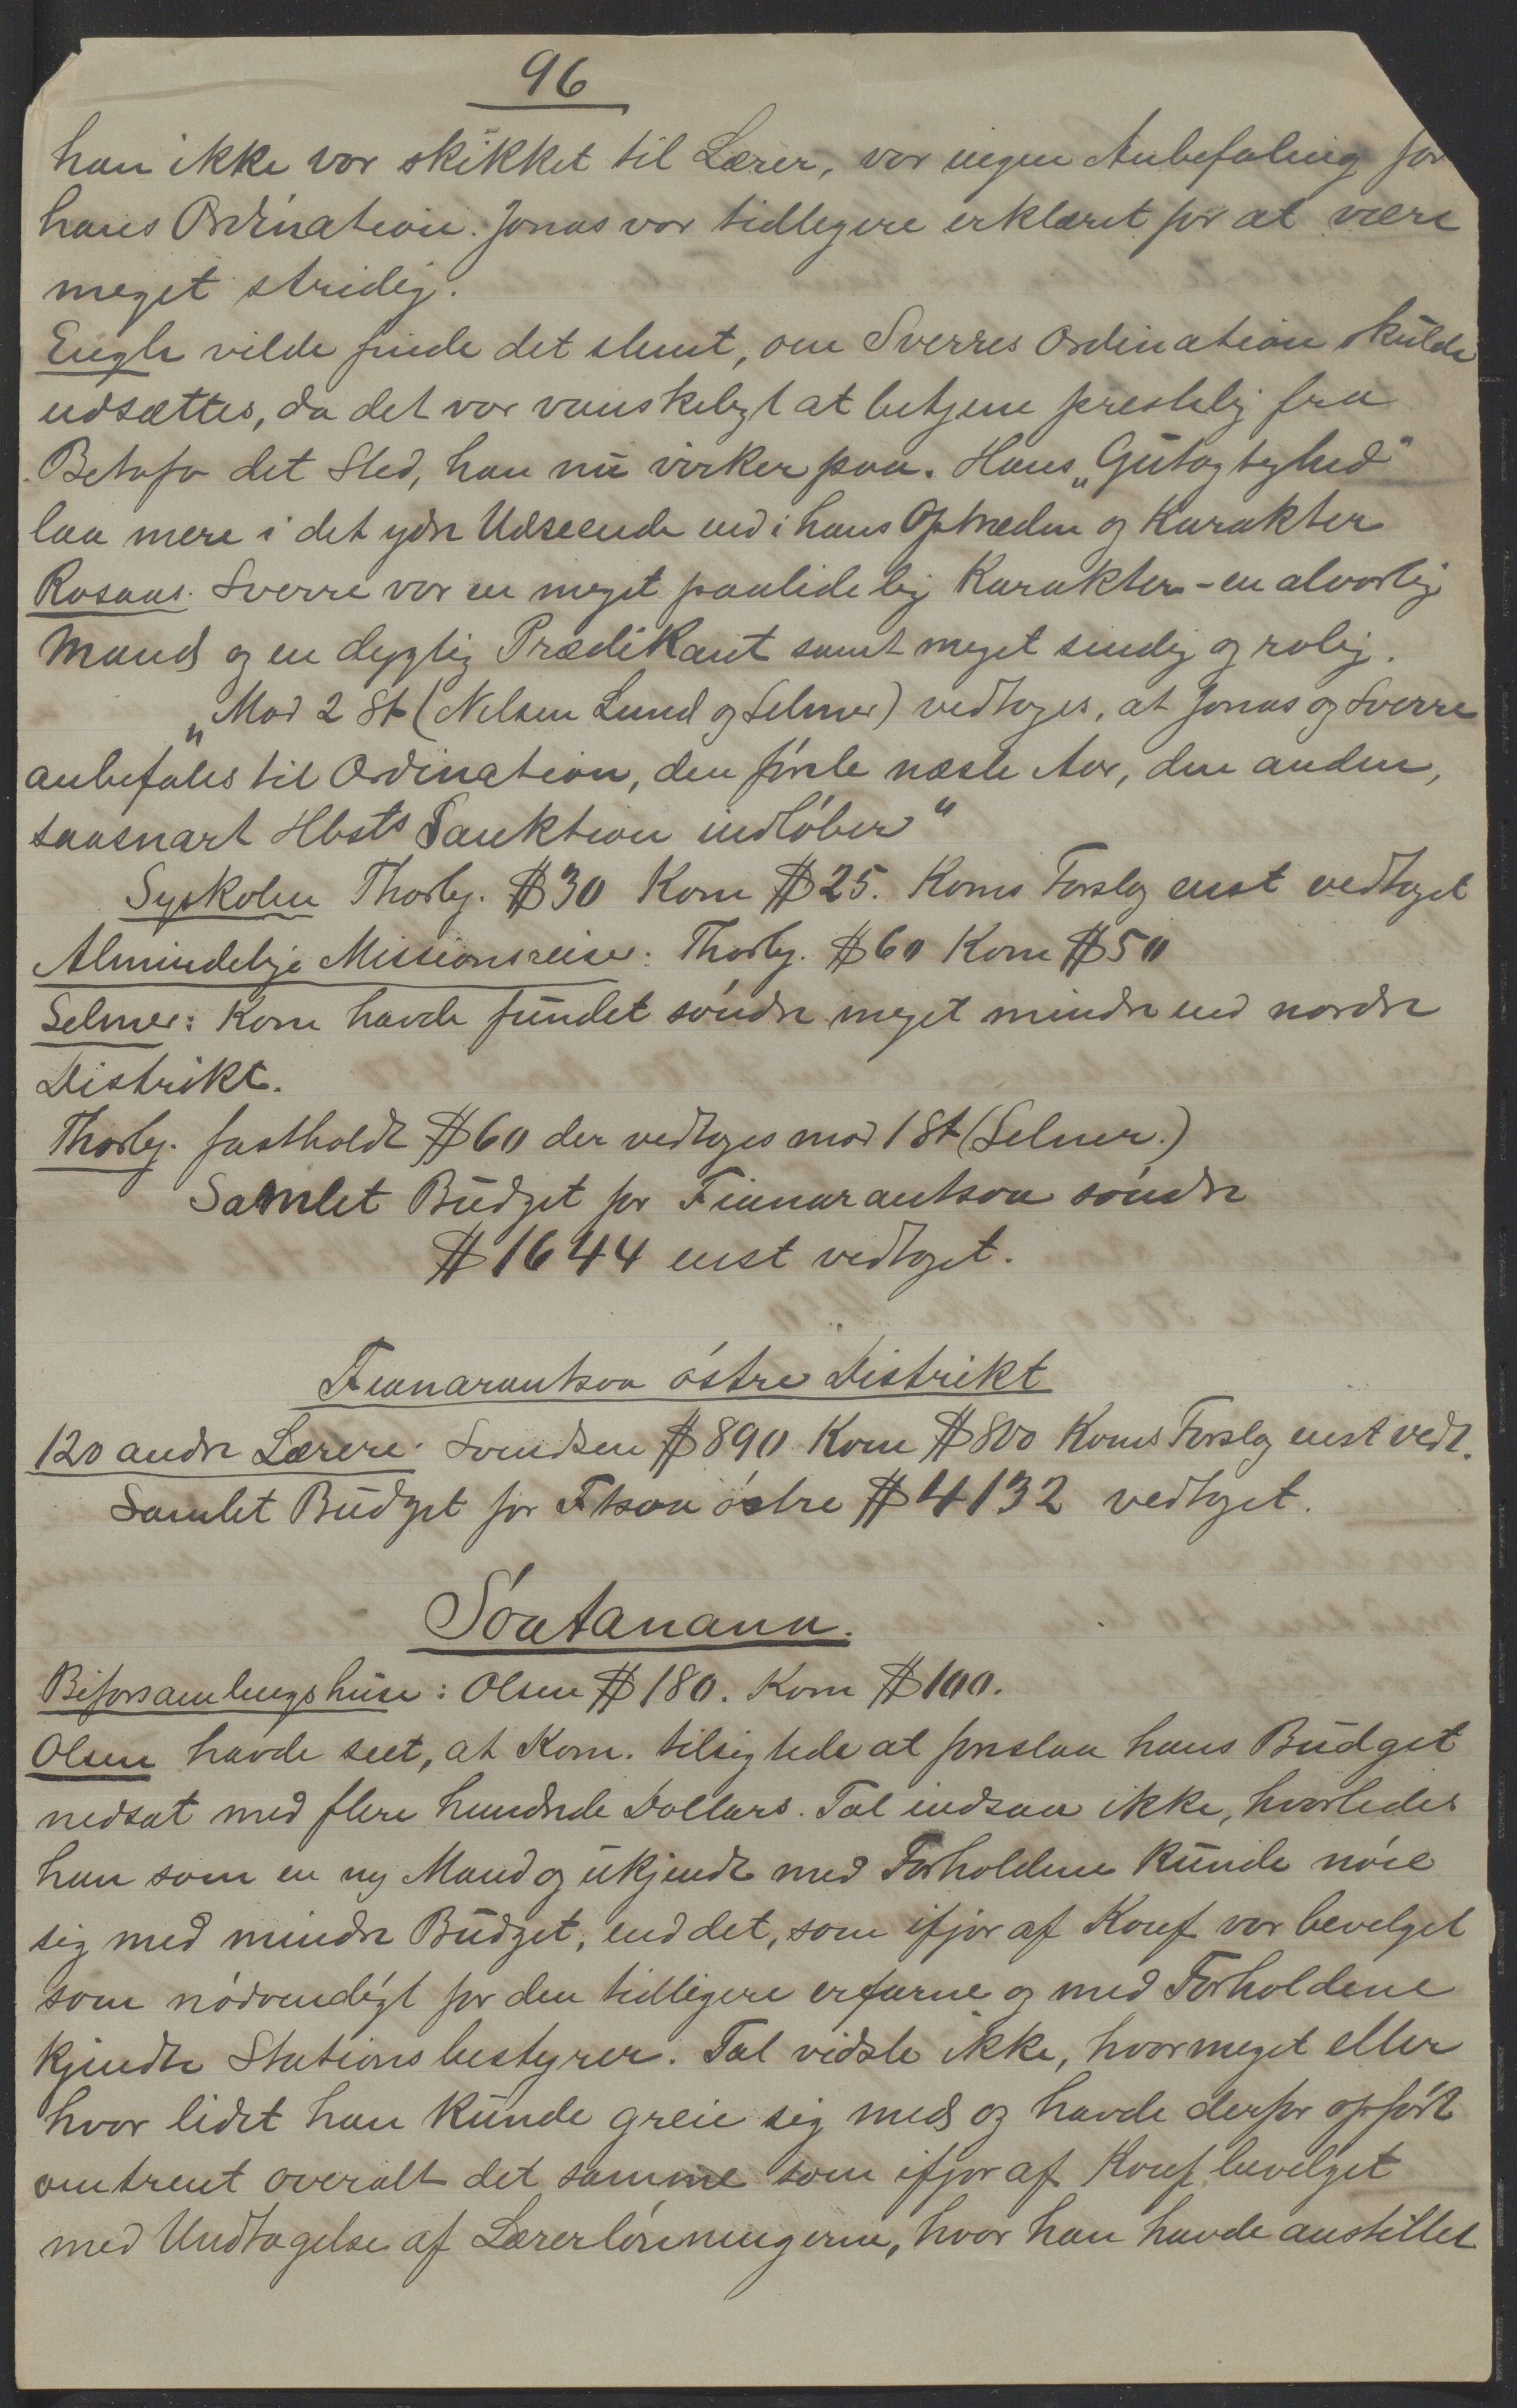 96
han ikke var skikket til Lærer, var ingen Anbefaling for
hans Ordination. Jonas var tidligere erklæret for at være
meget stridig.
Engh vilde finde det slemt, om Sverres Ordination skulde
udsættes, da det var vanskeligt at betjene prestelig fra
Betafo det Sted, han nu virker paa. Hans „Gutagtighed"
laa mere i det ydre Udseende end i hans Optræden og Karakter
Rosaas. Sverre var en meget paalidelig Karakter - en alvorlig
Mand og en dygtig Prædikant samt meget sindig og rolig.
„Mod 2 St (Nilsen Lund og Selmer) vedtoges, at Jonas og Sverre
anbefales til Ordination, den første næste Aar, den anden,
saasnart Hbsts Sanktion indløber"
Syskolen Thorbj. $30 Kom $25. Koms Forslag enst vedtaget
Almindelige Missionsreiser: Thorbj. $60 Kom $50
Selmer: Kom havde fundet søndre meget mindre end nordre
Distrikt.
Thorbj. fastholdt $60 der vedtoges mod 1 St (Selmer.)
Samlet Budget for Fianarantsoa søndre
$1644 enst vedtaget.
Fianarantsoa østre Distrikt
120 andre Lærere. Svendsen $890 Kom $800 Koms Forslag enst vedt.
Samlet Budget for Ftsoa østre $4132 vedtaget.
Soatanana.
Biforsamlingshuse: Olsen $180. Kom $100.
Olsen havde seet, at Kom. tilsigtede at foreslaa hans Budget
nedsat med flere hundrede Dollars. Tal indsaa ikke, hvorledes
han som en ny Mand og ukjendt med Forholdene kunde nøie
sig med mindre Budget, end det, som ifjor af Konf var bevilget
som nødvendigt for den tidligere erfarne og med Forholdene
kjendte Stationsbestyrer. Tal vidste ikke, hvormeget eller
hvor lidet han kunde greie sig med og havde derfor opført
omtrent overalt det samme som ifjor af Konf bevilget
med Undtagelse af Lærerlønningerne, hvor han havde anstillet